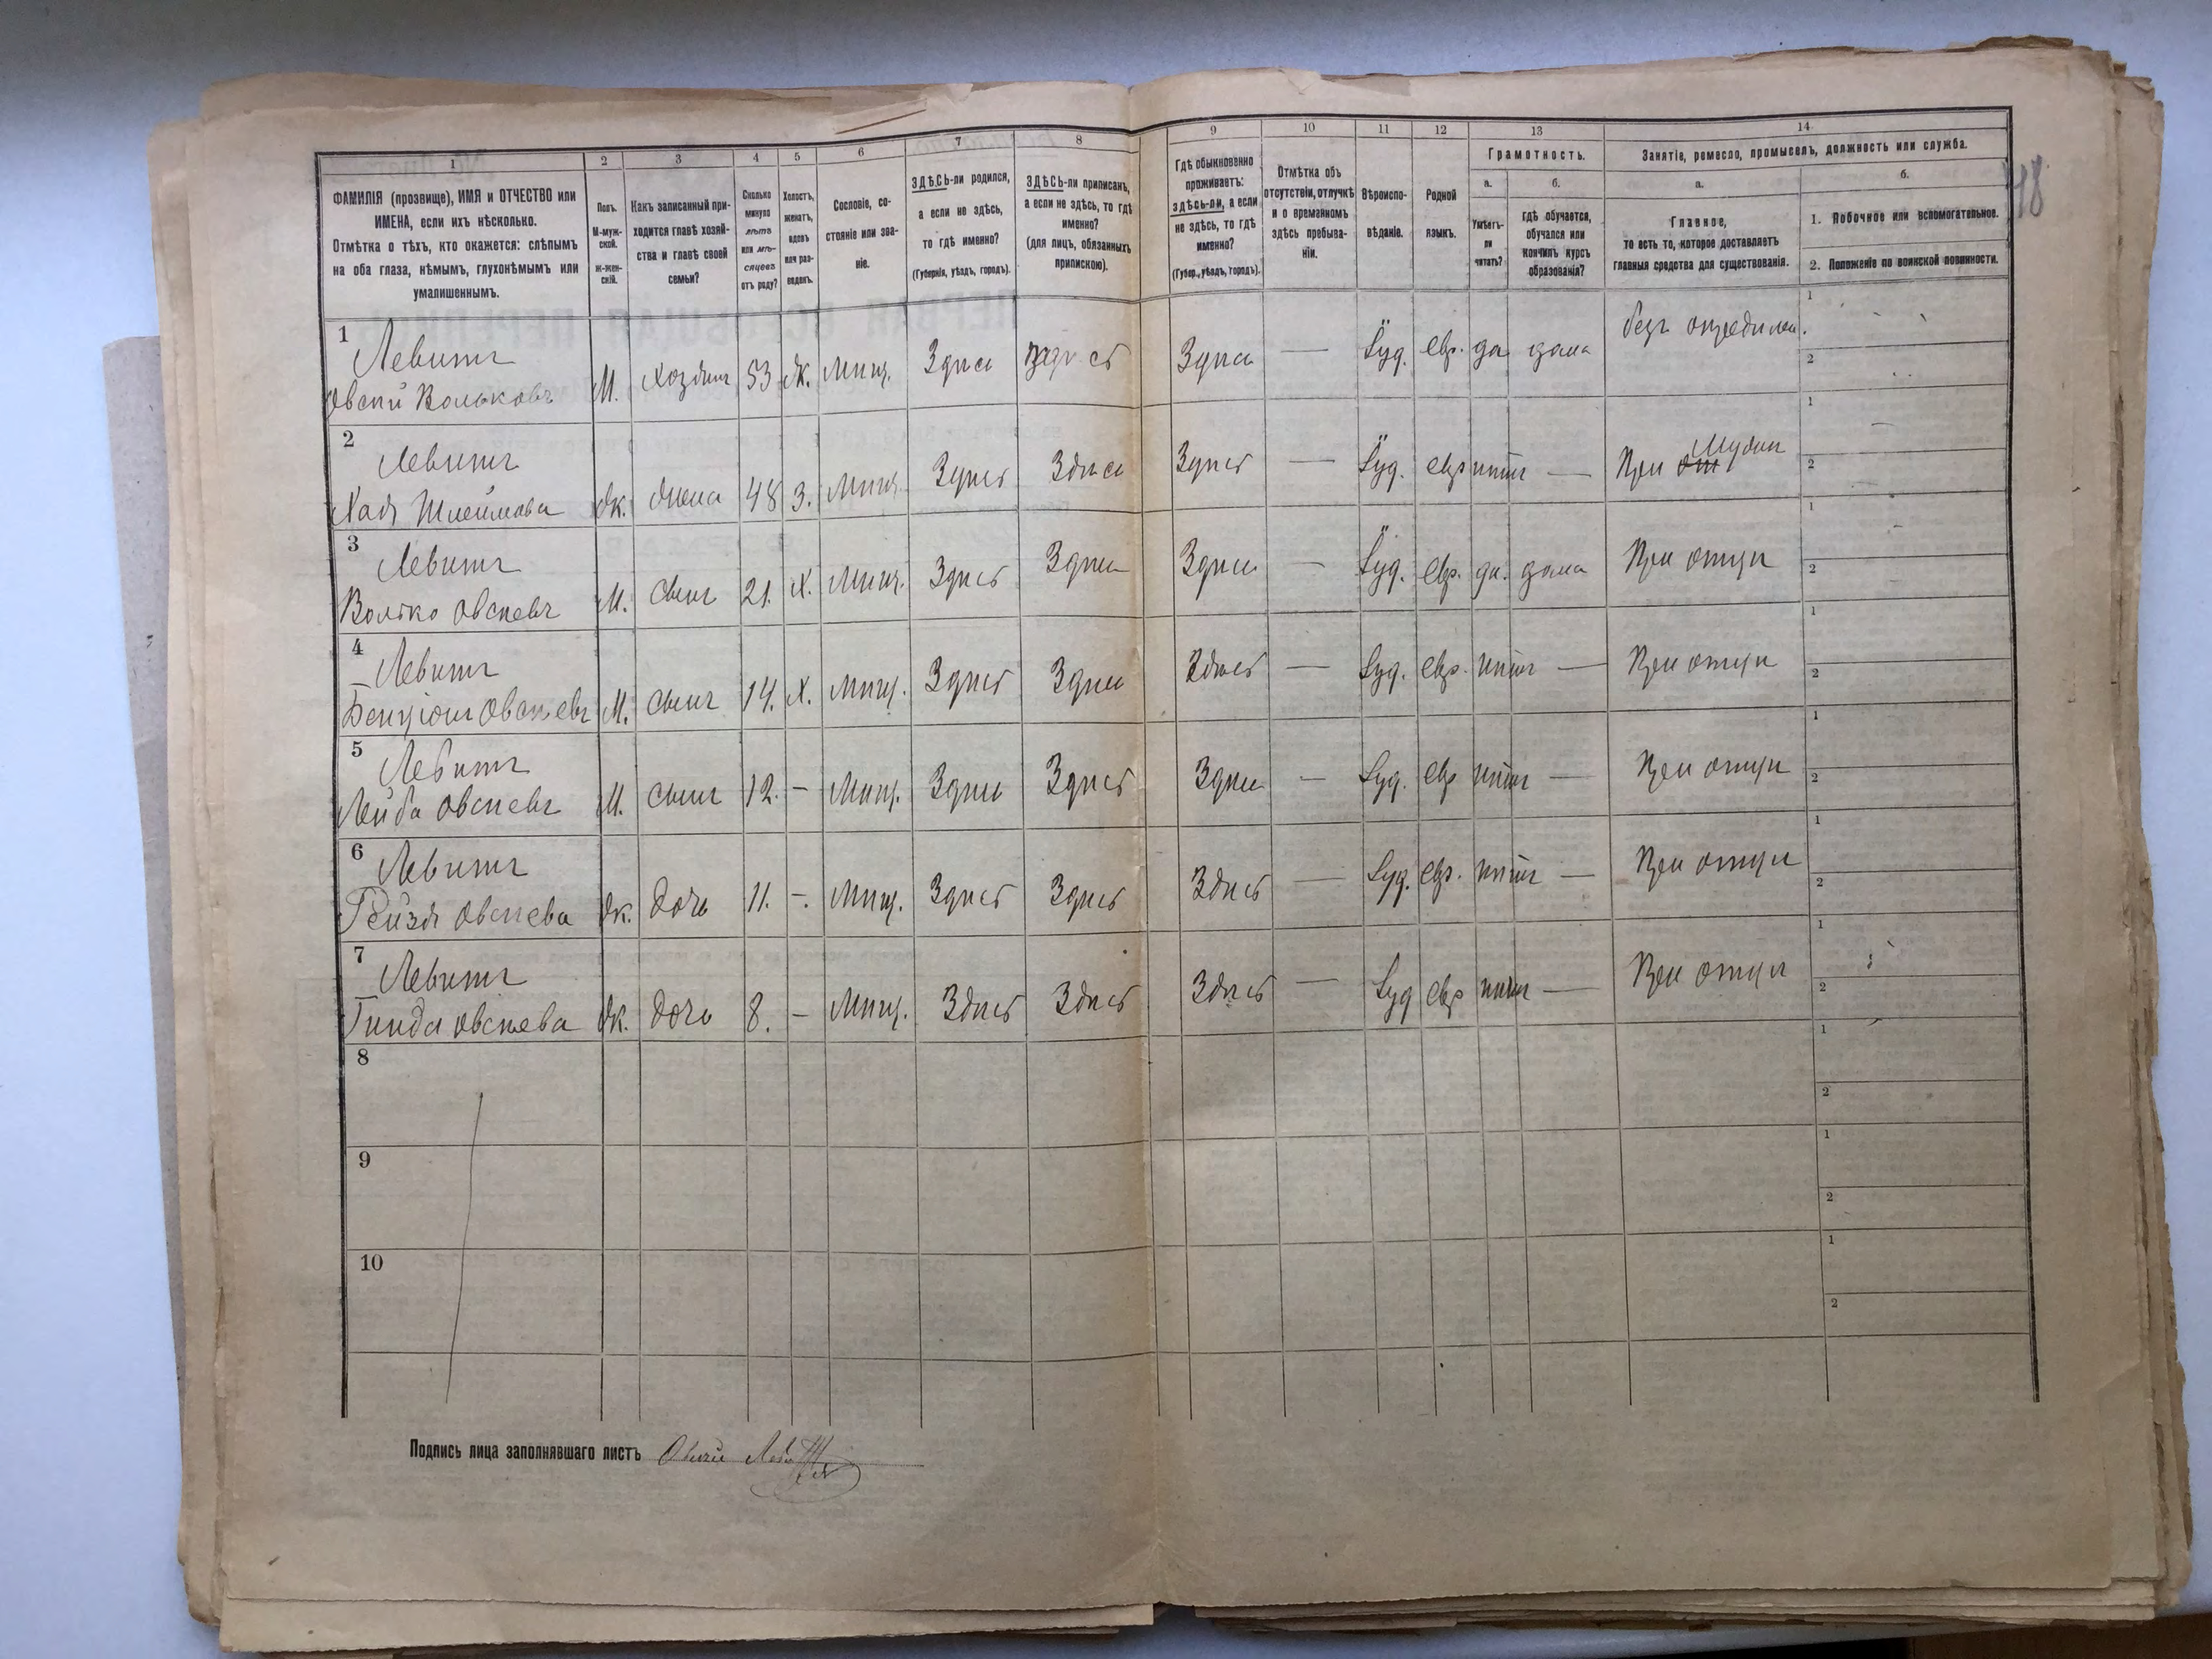 1
2
3
4
5
6
7
8
9
10
11
12
13
14
ФАМИЛІЯ (прозвище), ИМЯ и ОТЧЕСТВО или
ИМЕНА, если ихъ нѣсколько.
Отмѣтка о тѣхъ, кто окажется: слѣпымъ
на оба глаза, нѣмымъ, глухонѣмымъ или
умалишеннымъ.
Полъ.
М-муж-
ской.
ж-жен-
скій.
Какъ записанный при-
ходится главѣ хозяй-
ства и главѣ своей
семьи?
Сколько
минуло
лѣтъ
или мѣ-
сяцевъ
отъ роду?
Холостъ,
женатъ,
вдовъ
или раз-
веденъ.
Сословіе, со-
стояніе или зва-
ніе.
ЗДѢСЬ-ли родился,
а если не здѣсь,
то гдѣ именно?
(Губернія, уѣздъ, городъ).
ЗДѢСЬ-ли приписанъ,
а если не здѣсь, то гдѣ
именно?
(для лицъ, обязанныхъ
припискою).
Гдѣ обыкновенно
проживаетъ:
здѣсь-ли, а если
не здѣсь, то гдѣ
именно?
(Губер., уѣздъ, городъ).
Отмѣтка объ
отсутствіи, отлучкѣ
и о временномъ
здѣсь пребыва-
ніи.
Вѣроиспо-
вѣданіе.
Родной
языкъ.
Грамотность.
а.
б.
Умѣетъ-
ли
читать?
Гдѣ обучается,
обучался или
кончилъ курсъ
образованія?
Занятіе, ремесло, промыселъ, должность или служба.
а.
б.
Главное,
то есть то, которое доставляетъ
главныя средства для существованія.
1. Побочное или вспомогательное.
2. Положеніе по воинской повинности.
18
1 Левитъ
Овсѣй Вольковъ М. хозяинъ 53 ж. мѣщ. Здѣсь Здѣсь Здѣсь — Іуд. евр. да дома безъ опредѣлен.
2 Левитъ
Хая Шлеймова ж. жена 48 З. мѣщ. Здѣсь Здѣсь Здѣсь — Іуд. евр нѣтъ — При мужѣ
3 Левитъ
Волько Овсѣевъ М. сынъ 21. х. мѣщ. Здѣсь Здѣсь Здѣсь — Іуд. евр. да. дома При отцѣ
4 Левитъ
Бенціонъ Овсѣевъ М. сынъ 14. х. мѣщ. Здѣсь Здѣсь Здѣсь — Іуд. евр. нѣтъ — При отцѣ
5 Левитъ
Лейба Овсѣевъ М. сынъ 12. — мѣщ. Здѣсь Здѣсь Здѣсь — Іуд. евр нѣтъ — При отцѣ
6 Левитъ
Рейзя Овсѣева ж. дочь 11. — мѣщ. Здѣсь Здѣсь Здѣсь — Іуд. евр. нѣтъ — При отцѣ
7 Левитъ
Гинда Овсѣева ж. дочь 8. — мѣщ. Здѣсь Здѣсь Здѣсь — Іуд евр нѣтъ — При отцѣ
8
9
10
Подпись лица заполнявшаго листъ Овсѣй Левитъ